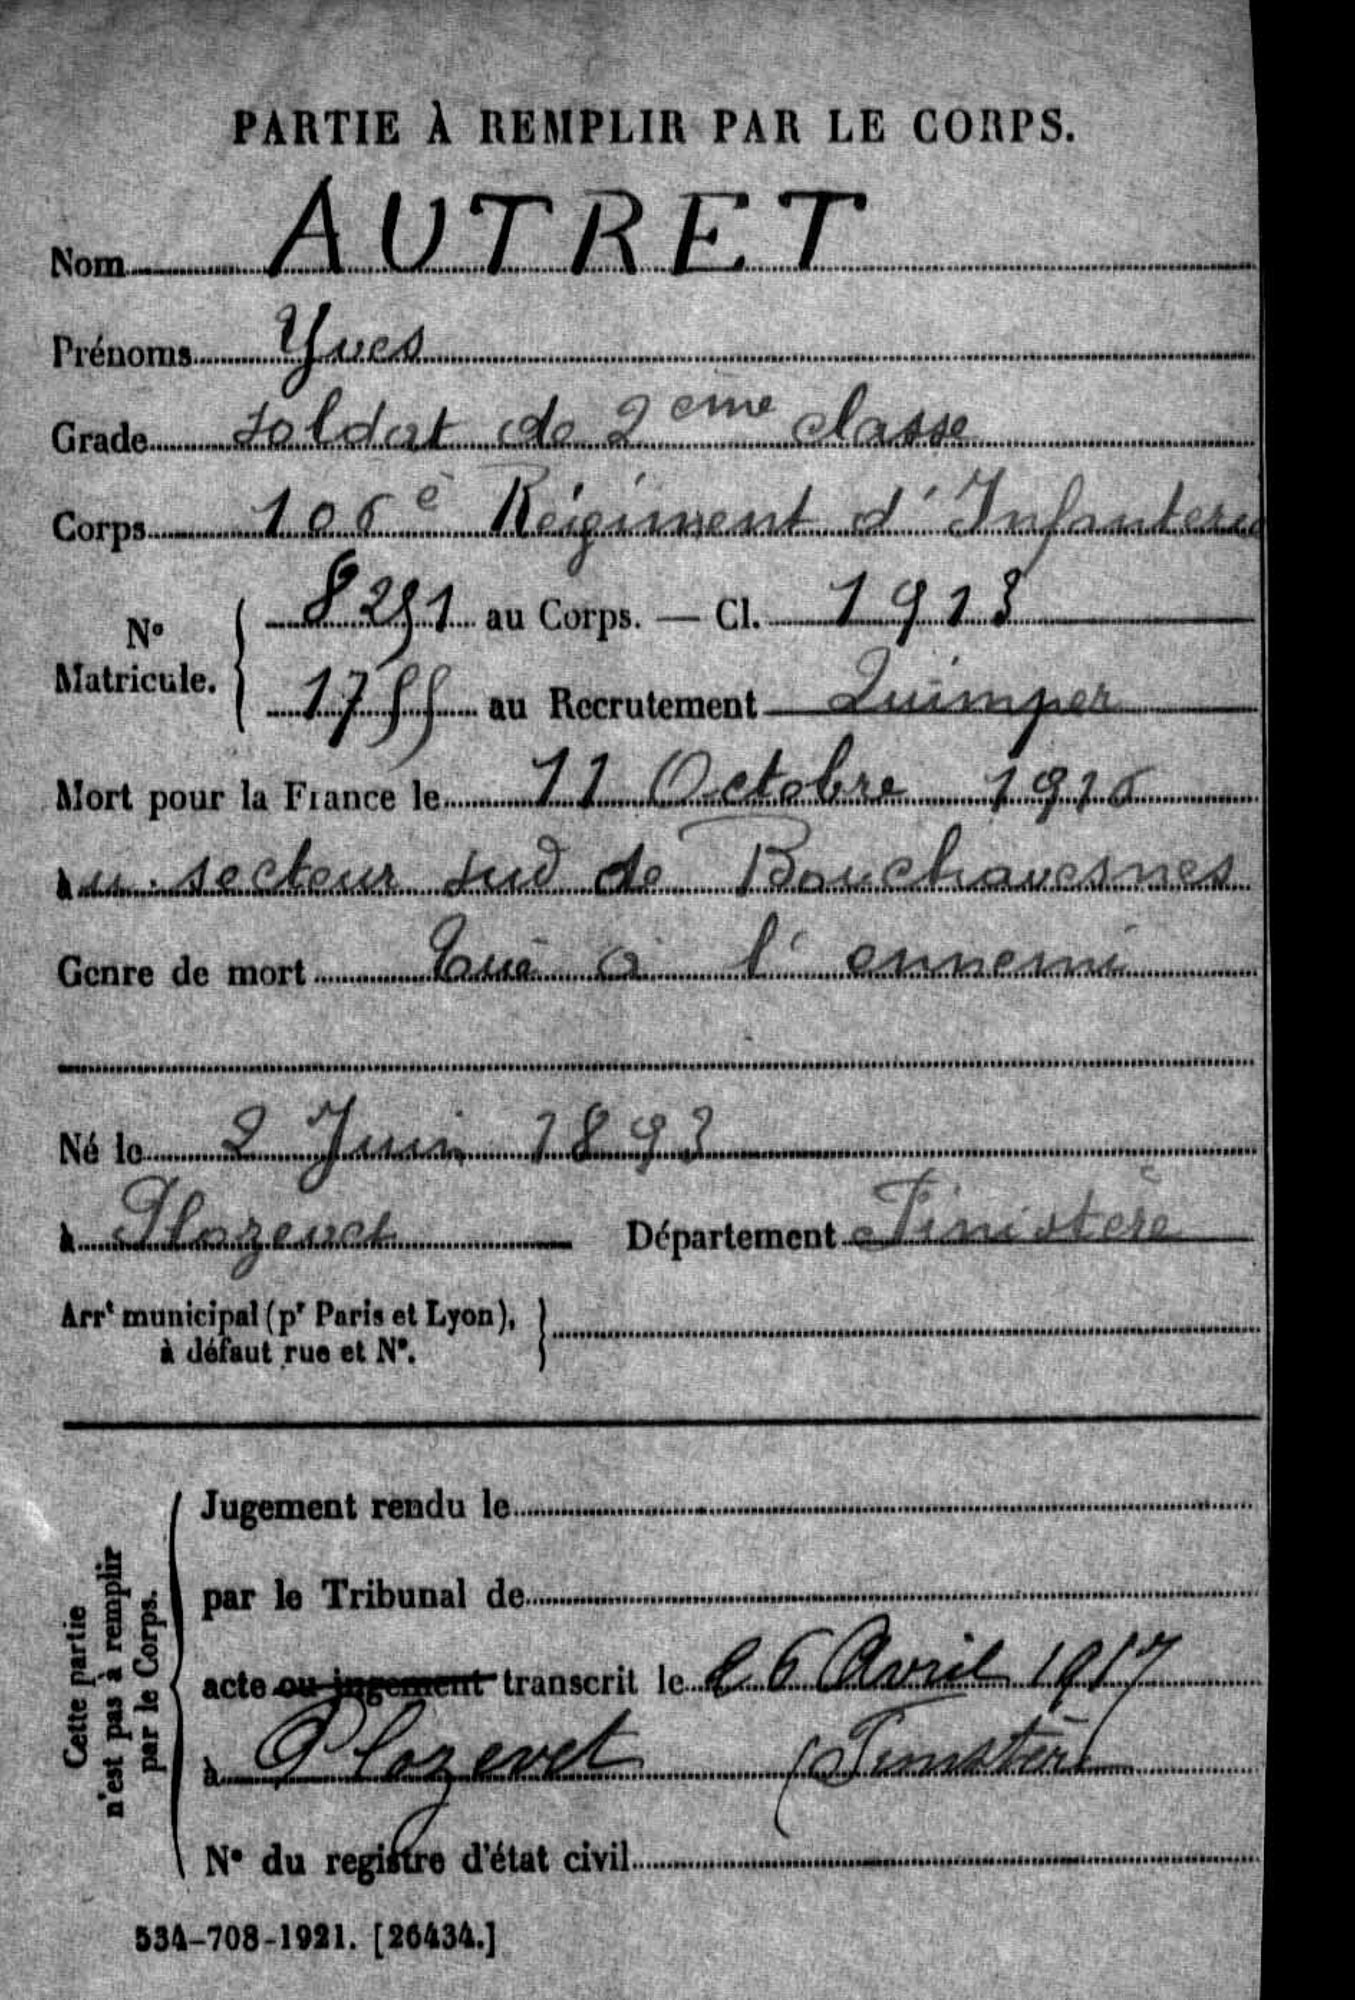 PARTIE À REMPLIR PAR LE CORPS.
Nom AUTRET
Prénoms Yves
Grade soldat de 2eme classe
Corps 106e Régiment d'Infanterie
N° Matricule. 8251 au Corps. — Cl. 1913
1755 au Recrutement Quimper
Mort pour la France le 11 Octobre 1916
au secteur sud de Bouchavesnes
Genre de mort Tué à l'ennemi
Né le 2 Juin 1893
à Plozevet Département Finistère
Arrt municipal (pr Paris et Lyon),
à défaut rue et N°.
Cette partie n'est pas à remplir par le Corps.
Jugement rendu le
par le Tribunal de
acte ou jugement transcrit le 26 Avril 1917
à Plozevet (Finistère)
N° du registre d'état civil
534-708-1921. [26434.]